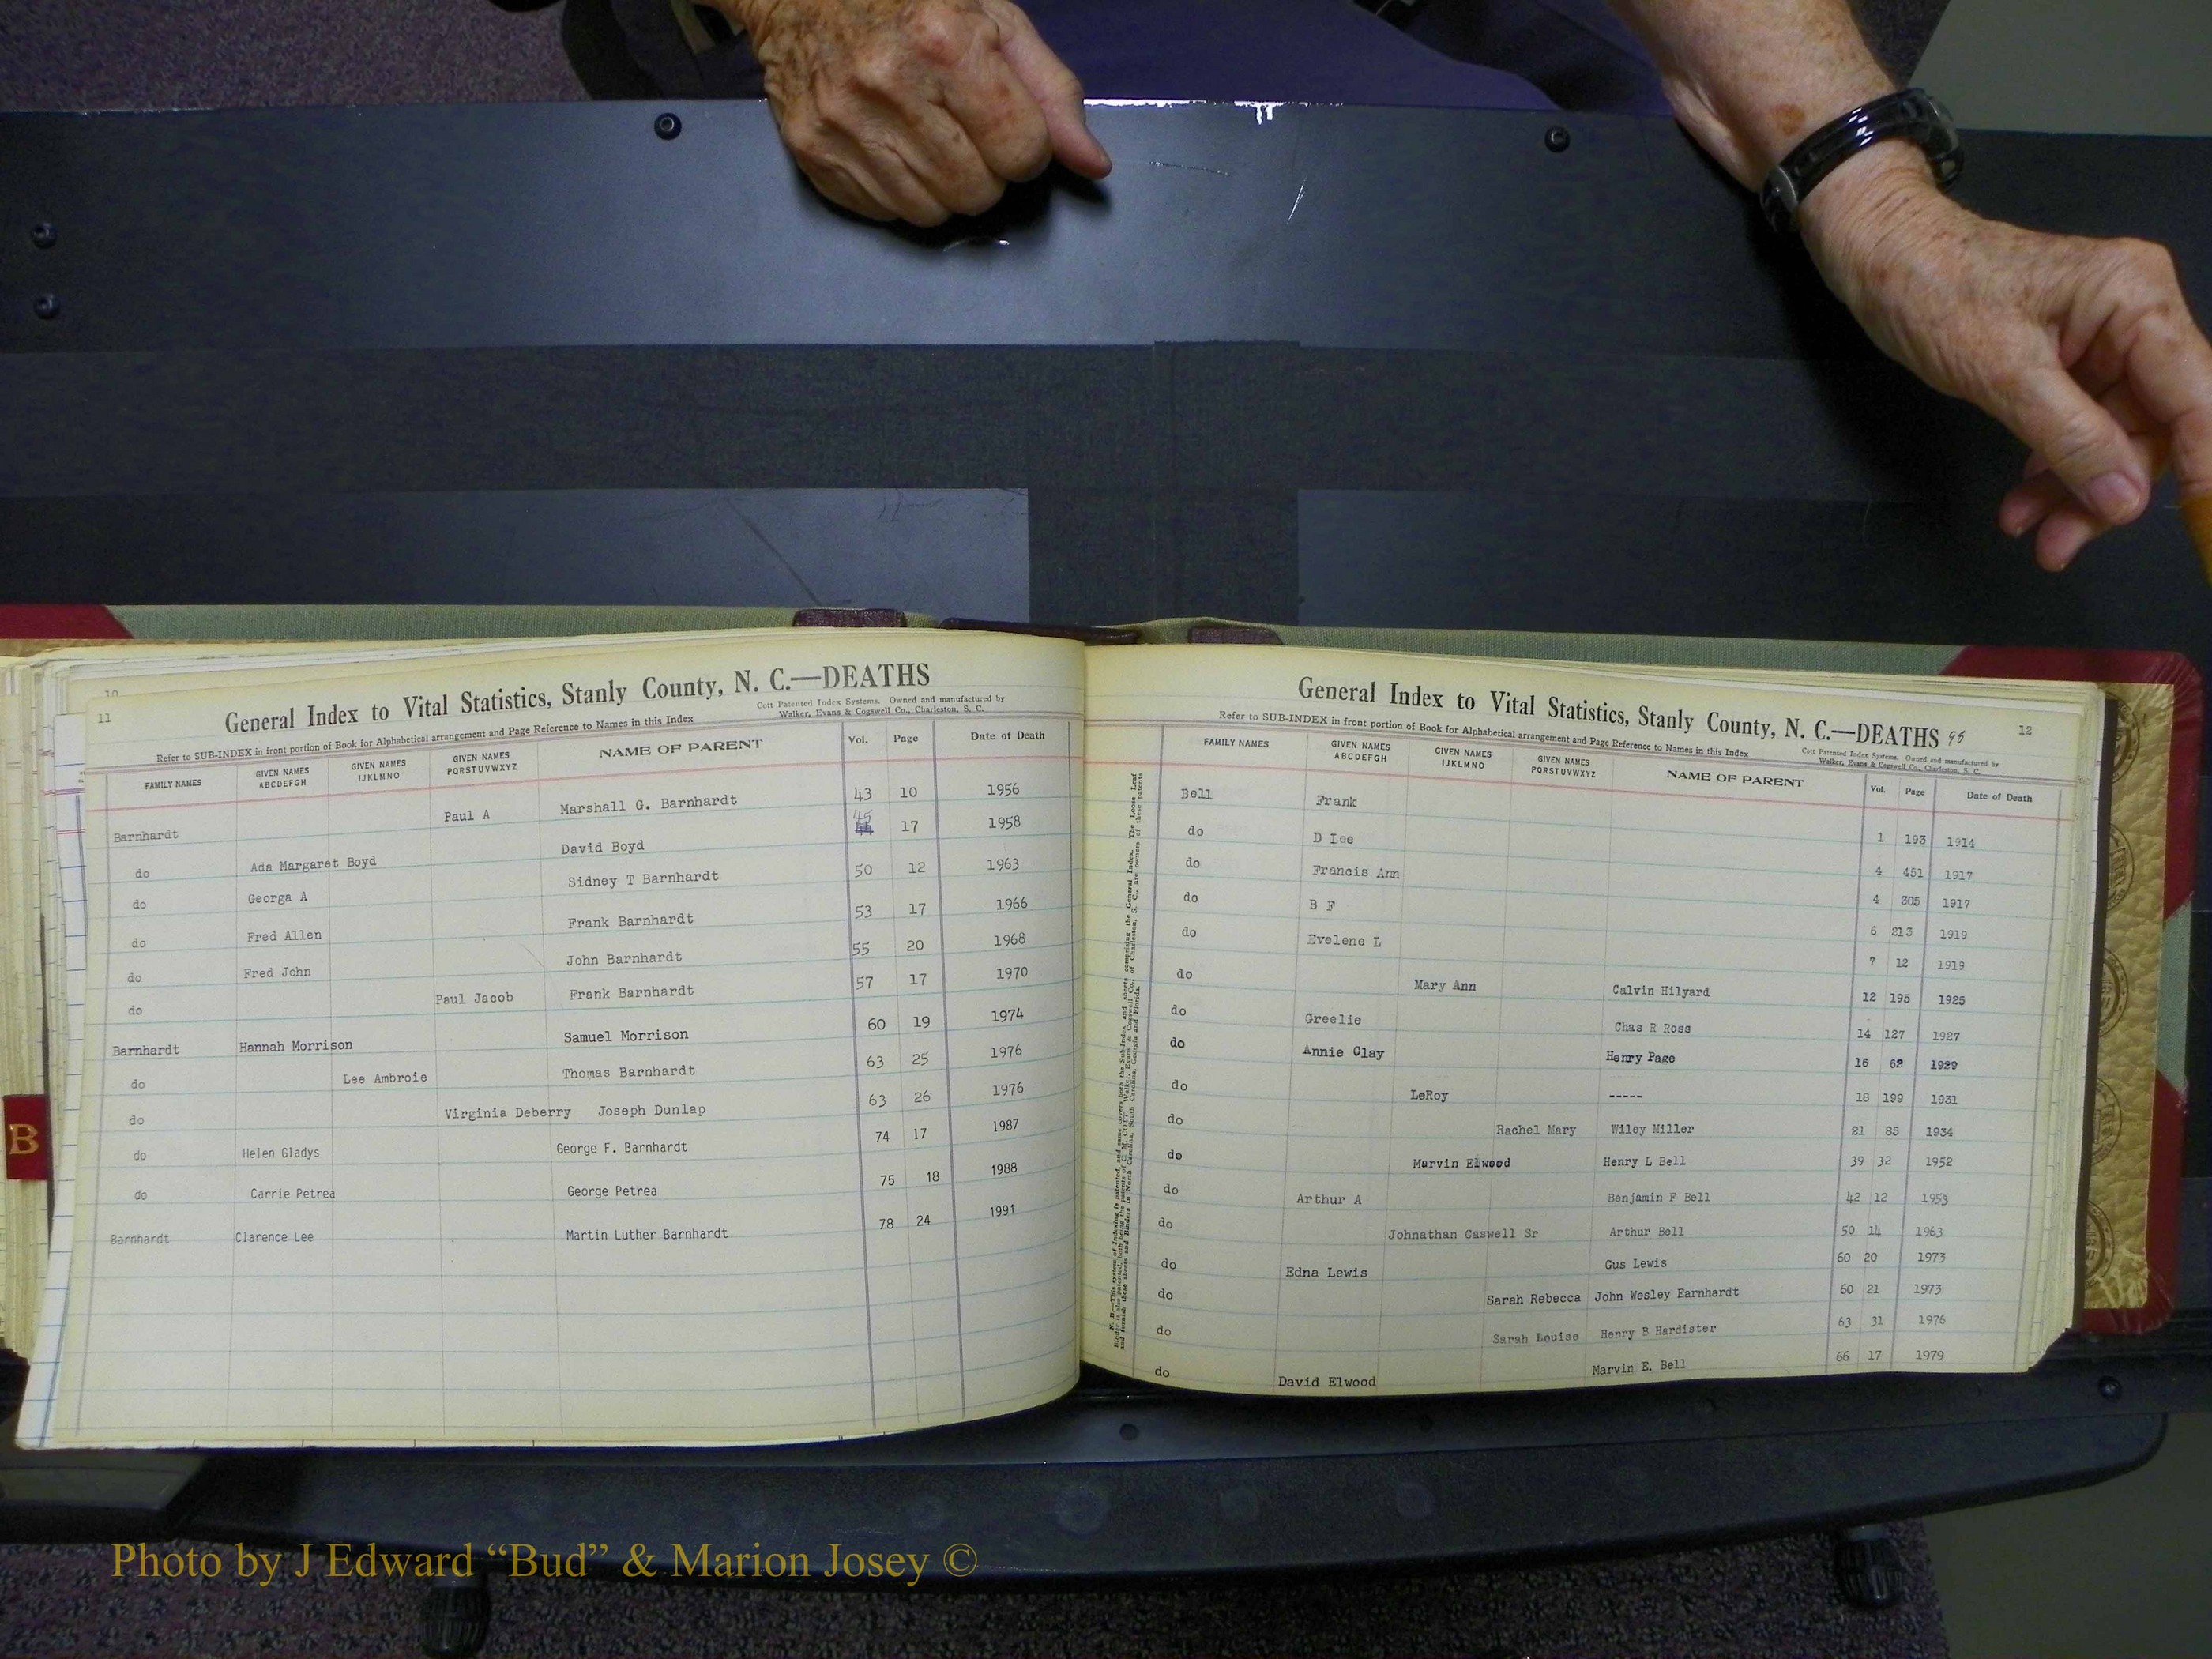 10
11
General Index to Vital Statistics, Stanly County, N. C.—DEATHS
Refer to SUB-INDEX in front portion of Book for Alphabetical arrangement and Page Reference to Names in this Index
Cott Patented Index Systems. Owned and manufactured by
Walker, Evans & Cogswell Co., Charleston, S. C.
FAMILY NAMES GIVEN NAMES ABCDEFGH GIVEN NAMES IJKLMNO GIVEN NAMES PQRSTUVWXYZ NAME OF PARENT Vol. Page Date of Death
Barnhardt Paul A Marshall G. Barnhardt 43 10 1956
do Ada Margaret Boyd David Boyd 45 17 1958
do Georga A Sidney T Barnhardt 50 12 1963
do Fred Allen Frank Barnhardt 53 17 1966
do Fred John John Barnhardt 55 20 1968
do Paul Jacob Frank Barnhardt 57 17 1970
Barnhardt Hannah Morrison Samuel Morrison 60 19 1974
do Lee Ambroie Thomas Barnhardt 63 25 1976
do Virginia Deberry Joseph Dunlap 63 26 1976
do Helen Gladys George F. Barnhardt 74 17 1987
do Carrie Petrea George Petrea 75 18 1988
Barnhardt Clarence Lee Martin Luther Barnhardt 78 24 1991
B
General Index to Vital Statistics, Stanly County, N. C.—DEATHS 95
12
Refer to SUB-INDEX in front portion of Book for Alphabetical arrangement and Page Reference to Names in this Index
Cott Patented Index Systems. Owned and manufactured by
Walker, Evans & Cogswell Co., Charleston, S. C.
FAMILY NAMES GIVEN NAMES ABCDEFGH GIVEN NAMES IJKLMNO GIVEN NAMES PQRSTUVWXYZ NAME OF PARENT Vol. Page Date of Death
Bell Frank 1 193 1914
do D Lee 4 451 1917
do Francis Ann 4 305 1917
do B F 6 213 1919
do Evelene L 7 12 1919
do Mary Ann Calvin Hilyard 12 195 1925
do Greelie Chas R Ross 14 127 1927
do Annie Clay Henry Page 16 62 1929
do LeRoy ----- 18 199 1931
do Rachel Mary Wiley Miller 21 85 1934
do Marvin Elwood Henry L Bell 39 32 1952
do Arthur A Benjamin F Bell 42 12 1953
do Johnathan Caswell Sr Arthur Bell 50 14 1963
do Edna Lewis Gus Lewis 60 20 1973
do Sarah Rebecca John Wesley Earnhardt 60 21 1973
do Sarah Louise Henry B Hardister 63 31 1976
do David Elwood Marvin E. Bell 66 17 1979
Photo by J Edward “Bud” & Marion Josey ©